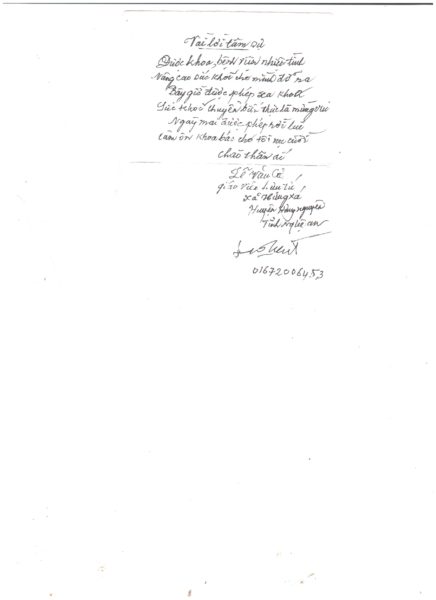 Vài lời tâm sự
Được khoa, bệnh viện nhiệt tình
Nâng cao sức khỏe cho mình đỡ ra
Bây giờ được phép xa khoa
Sức khoẻ thuyên biến thực là mừng vui
Ngày mai được phép rời lui
Cảm ơn khoa bác cho tôi nụ cười
Chào thân ái
Lê Văn
giáo viên hưu trí
xã Hưng xá
Huyện Hưng nguyên
Tỉnh Nghệ an
01672006453